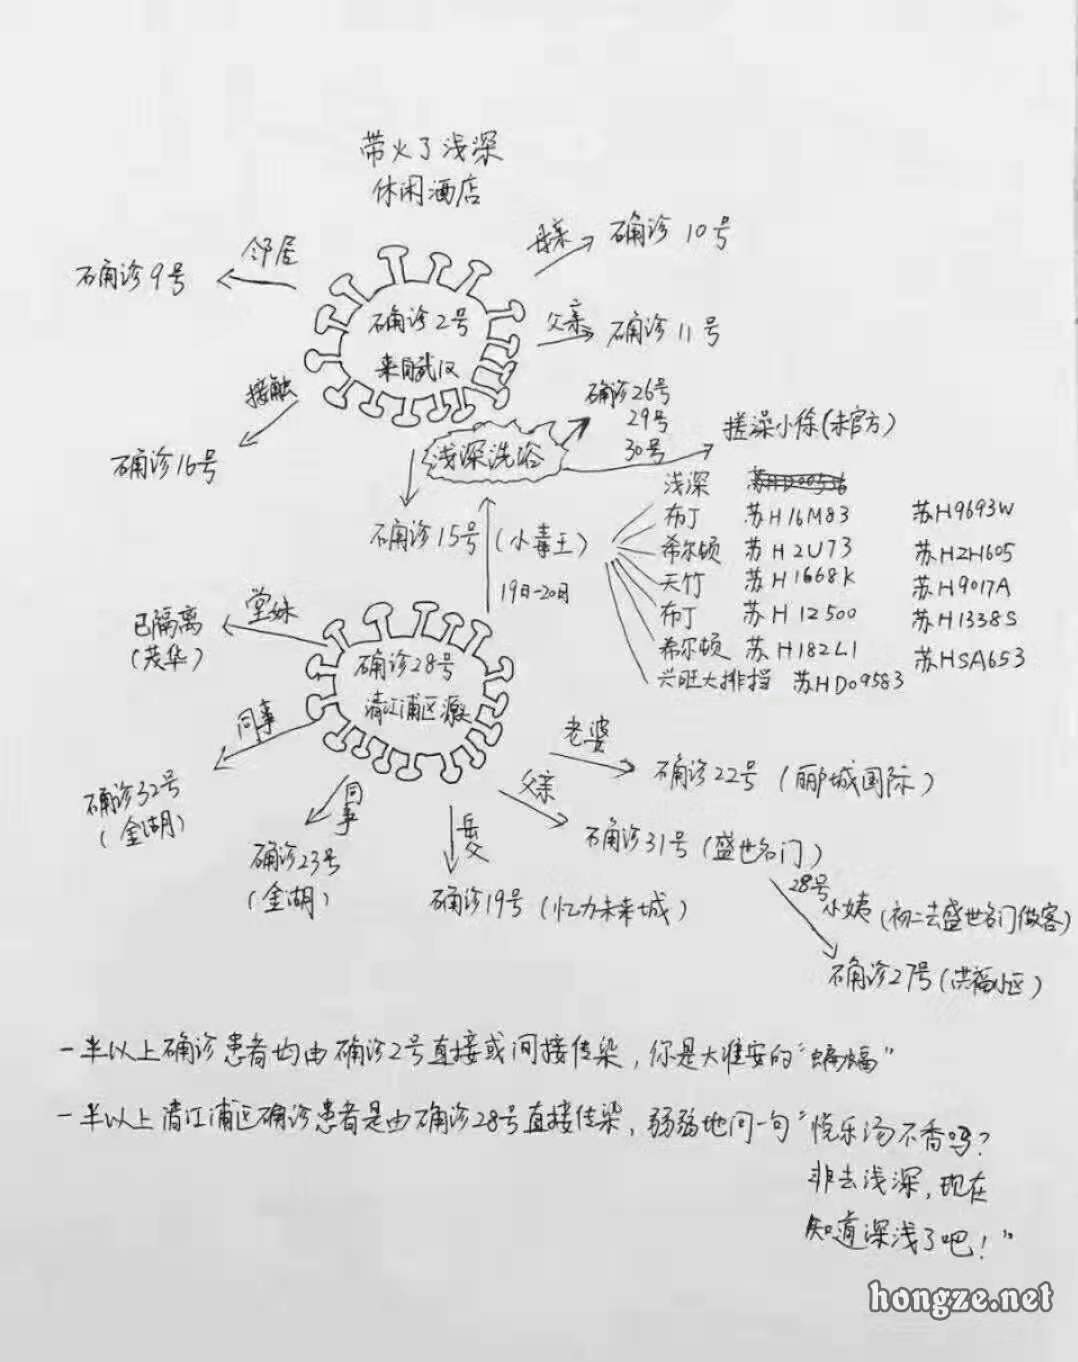 带火了浅深
休闲酒店
邻居
确诊9号
母亲
确诊 10号
确诊2号
来自武汉
父亲
确诊11号
接触
确诊16号
浅深洗浴
确诊26号
29号
30号
搓澡小徐(未官方)
确诊15号
(小毒王)
19日-20日
浅深
布丁 苏H16M83 苏H9693W
希尔顿 苏H2U73 苏H2H605
天竹 苏H1668K 苏H9017A
布丁 苏H12500 苏H1338S
希尔顿 苏H182L1 苏HSA653
兴旺大排档 苏HD09583
堂妹
已隔离
(茂华)
确诊28号
清江浦区源
同事
确诊32号
(金湖)
同事
确诊23号
(金湖)
岳父
确诊19号(忆力未来城)
老婆
确诊22号(郦城国际)
父亲
确诊31号(盛世名门)
28号
小姨(初二去盛世名门做客)
确诊27号(洪福小区)
一半以上确诊患者均由确诊2号直接或间接传染,你是大淮安的"蝙蝠"
一半以上清江浦区确诊患者是由确诊28号直接传染,弱弱地问一句"悦乐汤不香吗?
非去浅深,现在
知道深浅了吧!"
hongze.net